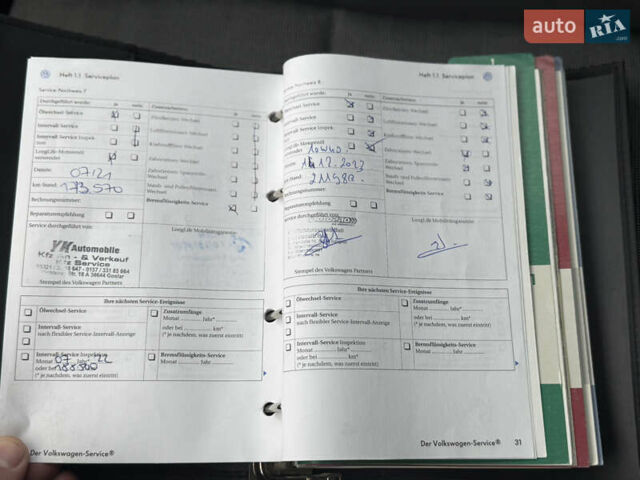 auto RIA
.com
Heft 1.1 Serviceplan
Service-Nachweis 7
Durchgeführt wurde: ja nein
Zusatzarbeiten: ja nein
Ölwechsel-Service
Intervall-Service
Intervall-Service Inspektion
LongLife-Motorenöl verwendet
Datum: 07/21
km-Stand: 173.570
Rechnungsnummer:
Reparaturempfehlung
Staub- und Pollenfiltereinsatz-Wechsel
Bremsflüssigkeits-Service
Service durchgeführt von:
LongLife Mobilitätsgarantie
YK Automobile
Kfz An - & Verkauf
Kfz Service
Str. 18 A 38644 Goslar
Stempel des Volkswagen Partners
Ihre nächsten Service-Ereignisse
Ölwechsel-Service
Zusatzumfänge
Monat ............ Jahr*
oder bei ............ km*
(* je nachdem, was zuerst eintritt)
Intervall-Service
nach flexibler Service-Intervall-Anzeige
Intervall-Service Inspektion
Monat 07 Jahr 22
oder bei 188500
(* je nachdem, was zuerst eintritt)
Bremsflüssigkeits-Service
Monat ............ Jahr*
Der Volkswagen-Service®
Heft 1.1 Serviceplan
Service-Nachweis 8
Durchgeführt wurde: ja nein
Zusatzarbeiten: ja nein
Ölwechsel-Service
Intervall-Service
Intervall-Service Inspektion
LongLife-Motorenöl
10W40
14.12.2023
km-Stand: 211980
Rechnungsnummer:
Reparaturempfehlung
Zündkerzen-Wechsel
Luftfiltereinsatz-Wechsel
Kraftstofffilter-Wechsel
Zahnriemen-Wechsel
Zahnriemen-Spannrolle-Wechsel
Staub- und Pollenfiltereinsatz-Wechsel
Bremsflüssigkeits-Service
Service durchgeführt von:
LongLife Mobilitätsgarantie
Stempel des Volkswagen Partners
Ihre nächsten Service-Ereignisse
Ölwechsel-Service
Zusatzumfänge
Monat ............ Jahr*
oder bei ............ km*
(* je nachdem, was zuerst eintritt)
Intervall-Service
nach flexibler Service-Intervall-Anzeige
Intervall-Service Inspektion
Monat ............ Jahr*
oder bei ............ km*
(* je nachdem, was zuerst eintritt)
Bremsflüssigkeits-Service
Monat ............ Jahr*
Der Volkswagen-Service® 31